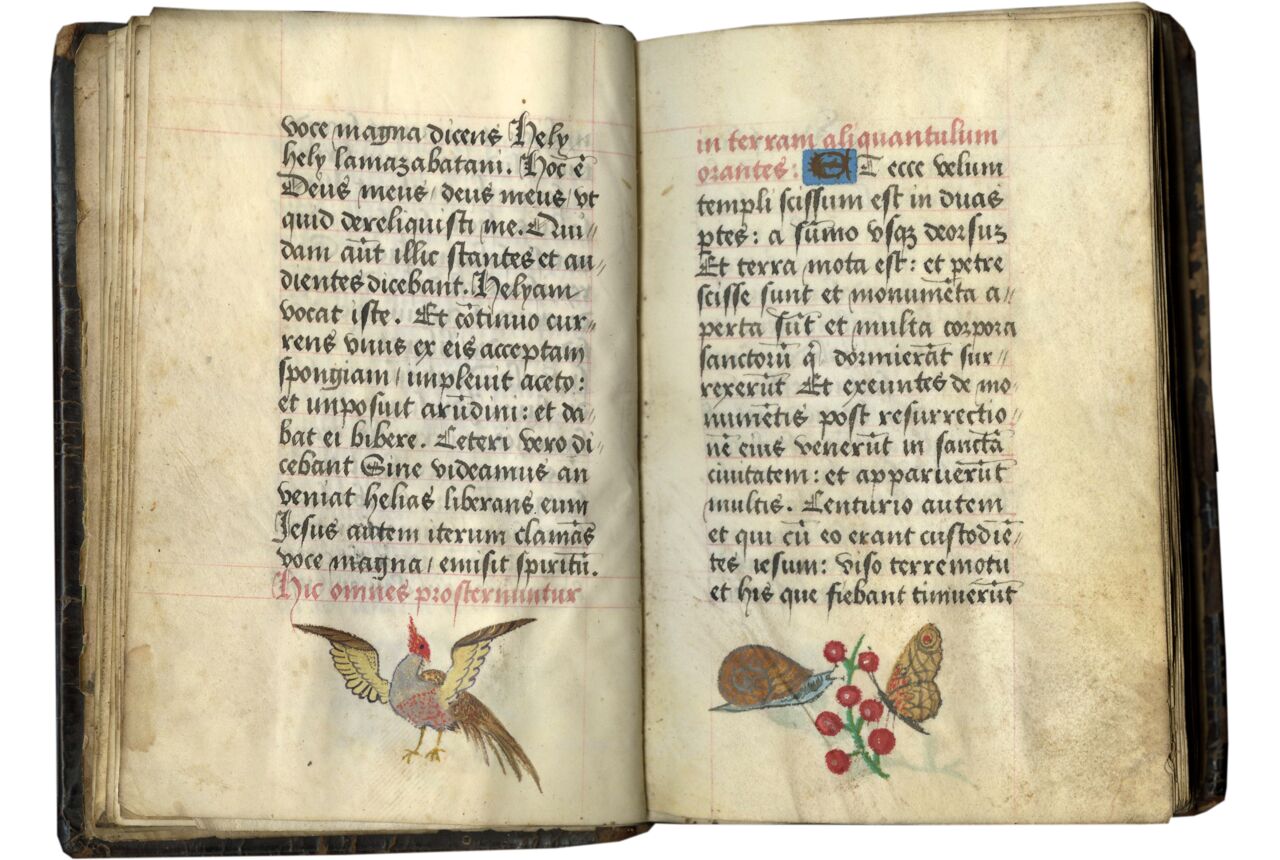 voce magna dicens Hely
hely lamazabatani. Hoc̄ ē
Deus meus / deus meus / vt
quid dereliquisti me. Qui//
dam aūt illic stantes et au//
dientes dicebant. Helyam
vocat iste. Et cōtinuo cur//
rens vnus ex eis acceptam
spongiam / impleuit aceto:
et imposuit arūdini: et da/
bat ei bibere. Ceteri vero di/
cebant Sine videamus an
veniat helias liberans eum
Jesus autem iterum clamās
voce magna / emisit spiritū.
Hic omnes prosternuntur
in terram aliquantulum
orantes: ET ecce velum
templi scissum est in duas
ꝑtes: a sūmo vsqꝫ deorsuꝫ
Et terra mota est: et petre
scisse sunt et monumēta a//
perta sūt et multa corpora
sanctorū q̄ dormierāt sur//
rexerūt Et exeuntes de mo/
numētis post resurrectio/
nē eius venerūt in sanctā
ciuitatem: et apparuerūt
multis. Centurio autem
et qui cū eo erant custodiē/
tes iesum: viso terremotu
et his que fiebant timuerūt